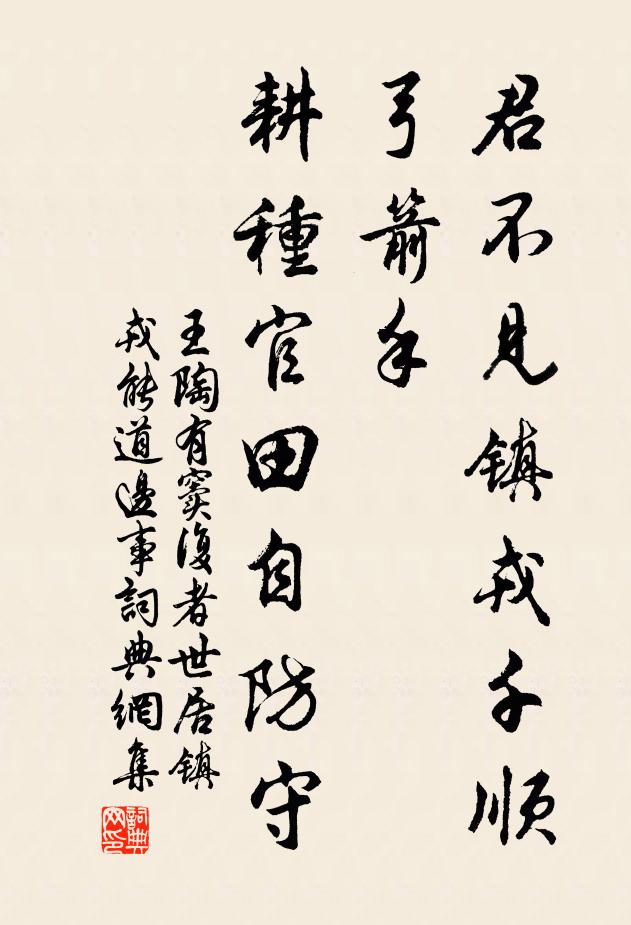 君不見鎮戎千順
弓箭手
耕種官田自防守
王陶有竇復者世居鎮
戎能道邊事詞典網集
詞典網印